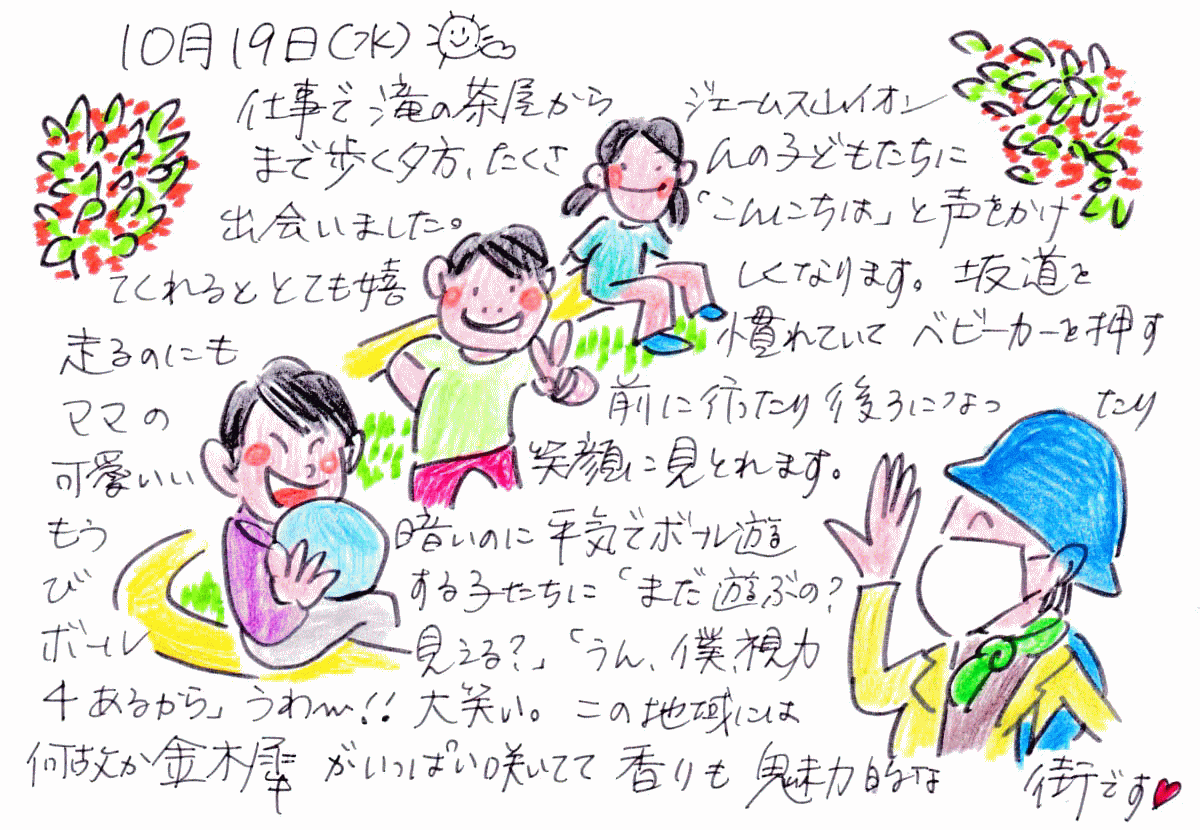 10月19日(水)
仕事で滝の茶屋から ジェームス山イオン
まで歩く夕方、たくさ んの子どもたちに
出会いました。 「こんにちは」と声をかけ
てくれるととても嬉 しくなります。坂道を
走るのにも 慣れていて ベビーカーを押す
ママの 前に行ったり後ろになっ たり
可愛いい 笑顔に見とれます。
もう 暗いのに平気でボール遊
び する子たちに「まだ遊ぶの?
ボール 見える?」「うん、僕、視力
4あるから」うわ〜!!大笑い。この地域には
何故か金木犀 がいっぱい咲いてて 香りも 魅力的な 街です